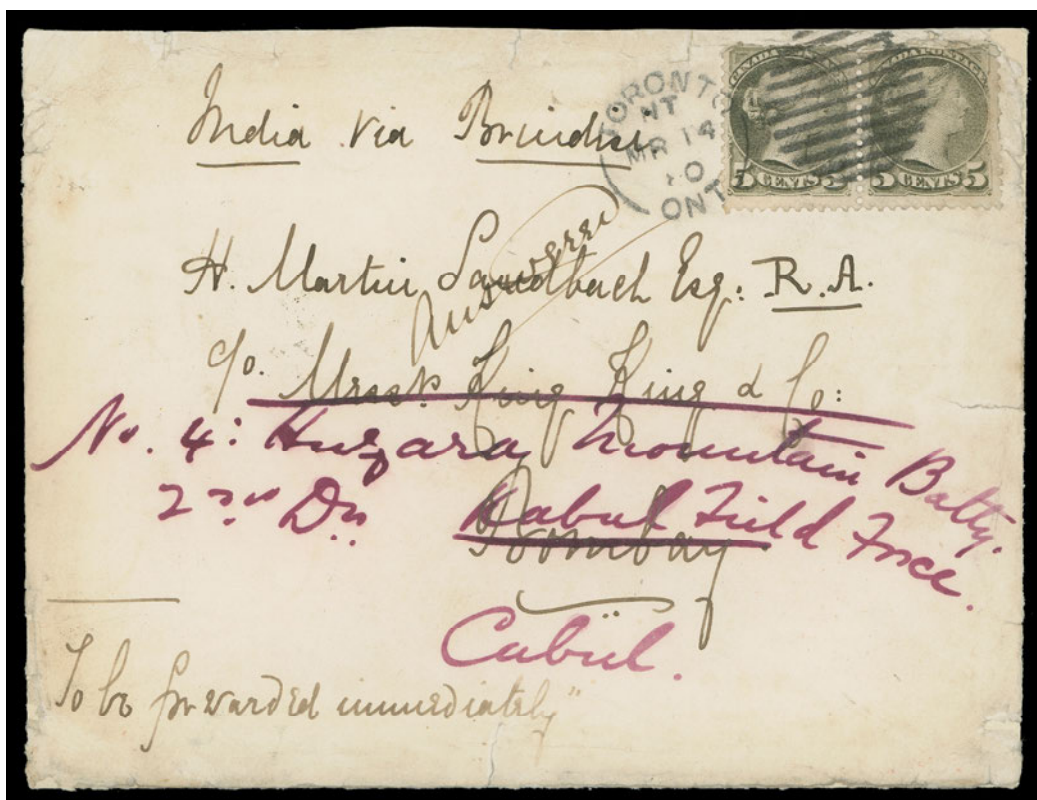 India via Brindisi
TORONTO
MR 14
ONT
5 CENTS 5
5 CENTS 5
H. Martin Sandbach Esq: R.A.
Answered
c/o. Messrs King King & Co:
No. 4: Huzara Mountain Batty.
2nd Dn. Kabul Field Force.
Bombay
Cabul.
To be forwarded immediately"